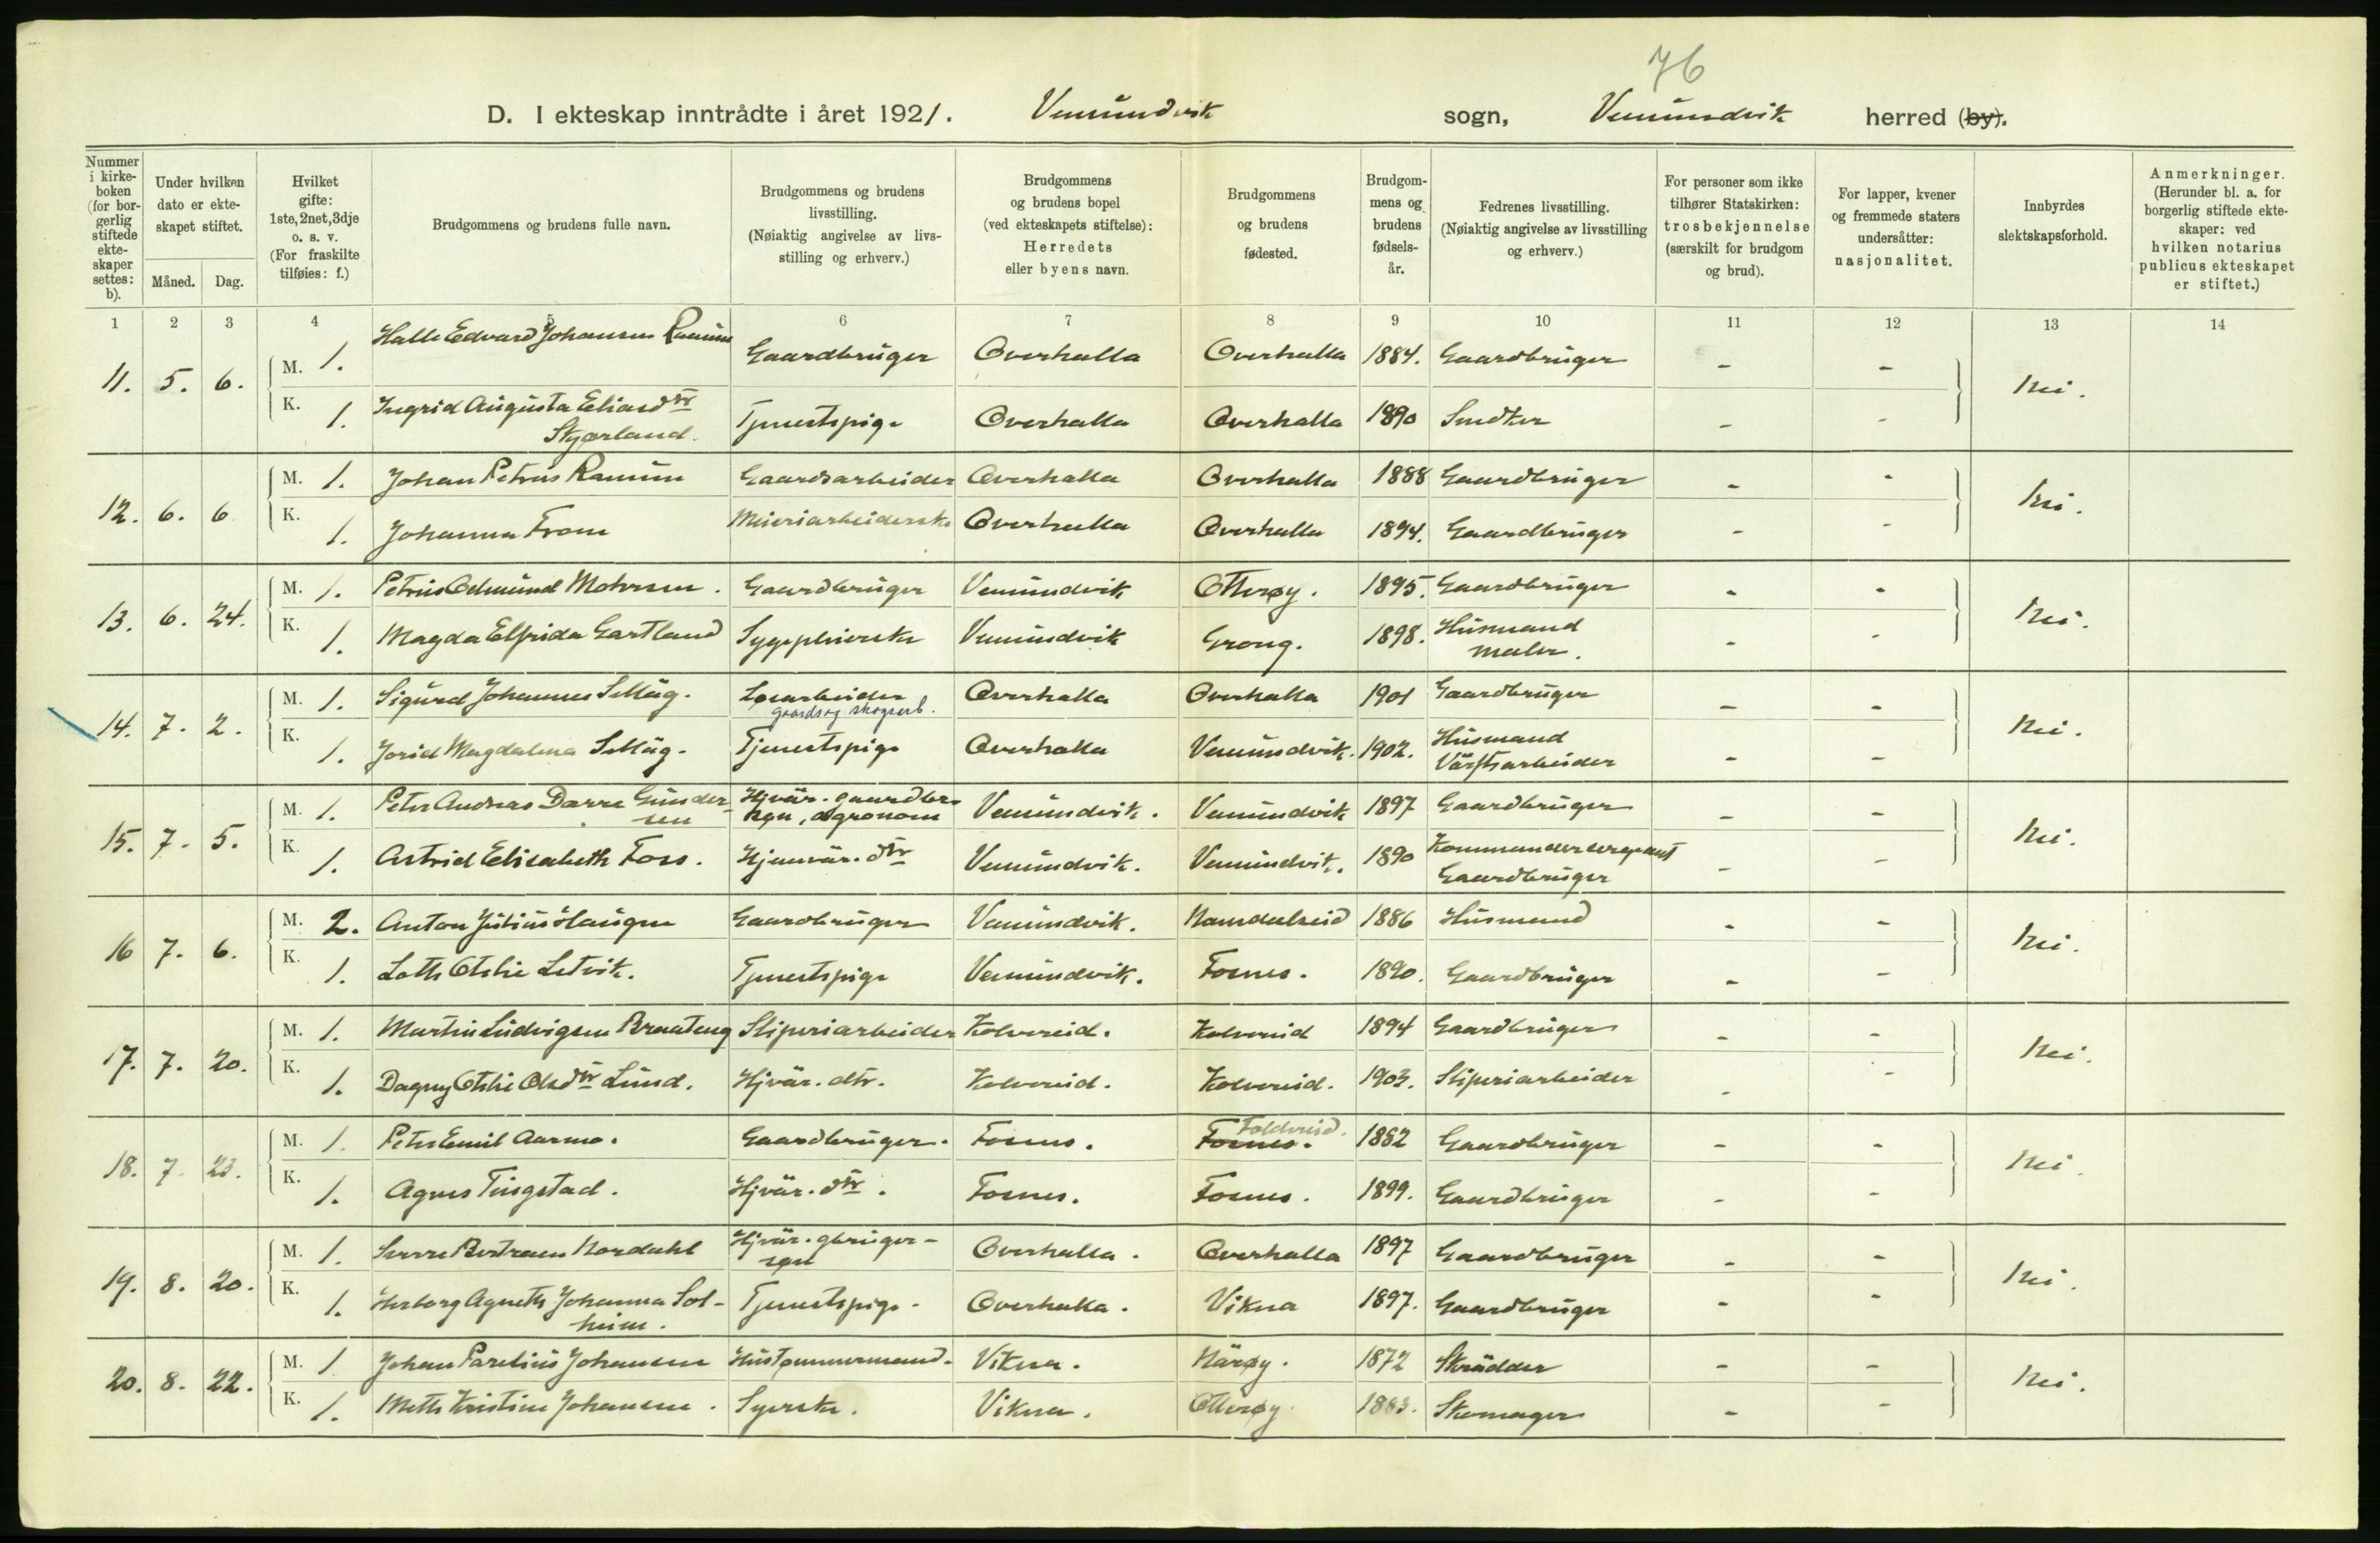 76
D. I ekteskap inntrådte i året 1921. Vemundvik sogn, Vemundvik herred (by).
Nummer i kirke-boken (for bor-gerlig stiftede ekte-skaper settes: b).
Under hvilken dato er ekte-skapet stiftet.
Måned. Dag.
Hvilket gifte: 1ste, 2net, 3dje o. s. v. (For fraskilte tilføies: f.)
Brudgommens og brudens fulle navn.
Brudgommens og brudens livsstilling. (Nøiaktig angivelse av livs-stilling og erhverv.)
Brudgommens og brudens bopel (ved ekteskapets stiftelse): Herredets eller byens navn.
Brudgommens og brudens fødested.
Brudgom-mens og brudens fødsels-år.
Fedrenes livsstilling. (Nøiaktig angivelse av livsstilling og erhverv.)
For personer som ikke tilhører Statskirken: trosbekjennelse (særskilt for brudgom og brud).
For lapper, kvener og fremmede staters undersåtter: nasjonalitet.
Innbyrdes slektskapsforhold.
Anmerkninger. (Herunder bl. a. for borgerlig stiftede ekte-skaper: ved hvilken notarius publicus ekteskapet er stiftet.)
1 2 3 4 5 6 7 8 9 10 11 12 13 14
11. 5. 6. M. 1. Halle Edvard Johansen Ramim Gaardbruger Overhalla Overhalla 1884. Gaardbruger - - Nei.
K. 1. Ingrid Augusta Eliasdtr Skjørland. Tjenestpige Overhalla Overhalla 1890 Snedker - -
12. 6. 6 M. 1. Johan Petrus Ramim Gaardsarbeider Overhalla Overhalla 1888 Gaardbruger - - Nei.
K. 1. Johanna From Meieriarbeiderske Overhalla Overhalla 1894. Gaardbruger - -
13. 6. 24. M. 1. Petrus Odmund Mohrsen. Gaardbruger Vemundvik Otterøy. 1895. Gaardbruger - - Nei.
K. 1. Magda Elfrida Gartland Sygepleierske Vemundvik Grong. 1898. Husmand maler. - -
14. 7. 2. M. 1. Sigurd Johannes Selläg. Løsarbeider gaards og skogsarb. Overhalla Overhalla 1901 Gaardbruger - - Nei.
K. 1. Jorid Magdalena Selläg. Tjenestpige Overhalla Vemundvik. 1902. Husmand Värftsarbeider - -
15. 7. 5. M. 1. Peter Andreas Darre Gunder-sen Hjvär. gaardbr. søn, agronom Vemundvik. Vemundvik 1897 Gaardbruger - - Nei.
K. 1. Astrid Elisabeth Foss. Hjemvär. dtr Vemundvik. Vemundvik. 1890 Kommandersergeant Gaardbruger - -
16 7. 6. M. 2. Anton Julius Haugen Gaardbruger Vemundvik. Namdalseid 1886 Husmand - - Nei.
K. 1. Lotte Otelie Setvik. Tjenestpige Vemundvik. Fosnes. 1890. Gaardbruger - -
17. 7. 20. M. 1. Martin Ludvigsen Braateng Sliperiarbeider Kolvereid. Kolvereid 1894 Gaardbruger - - Nei.
K. 1. Dagny Otelie Olsdtr Lund. Hjvär. dtr. Kolvereid. Kolvereid. 1903. Sliperiarbeider - -
18. 7. 23. M. 1. Peter Emil Aarmo. Gaardbruger. Fosnes. Fosnes. Foldereid. 1882 Gaardbruger - - Nei.
K. 1. Agnes Tingstad. Hjvär. dtr. Fosnes. Fosnes. 1899. Gaardbruger - -
19. 8. 20. M. 1. Sverre Bertram Nordahl Hjvär. gbruger-søn Overhalla. Overhalla 1897 Gaardbruger - - Nei.
K. 1. Herborg Agnethe Johanna Sol-heim. Tjenestpige. Overhalla. Vikna 1897. Gaardbruger - -
20. 8. 22. M. 1 Johan Parelius Johansen Hustømmermand. Vikna. Närøy. 1872 Skrädder - - Nei.
K. 1. Mette Kristine Johansen. Syerske. Vikna. Otterøy. 1883. Skomager - -